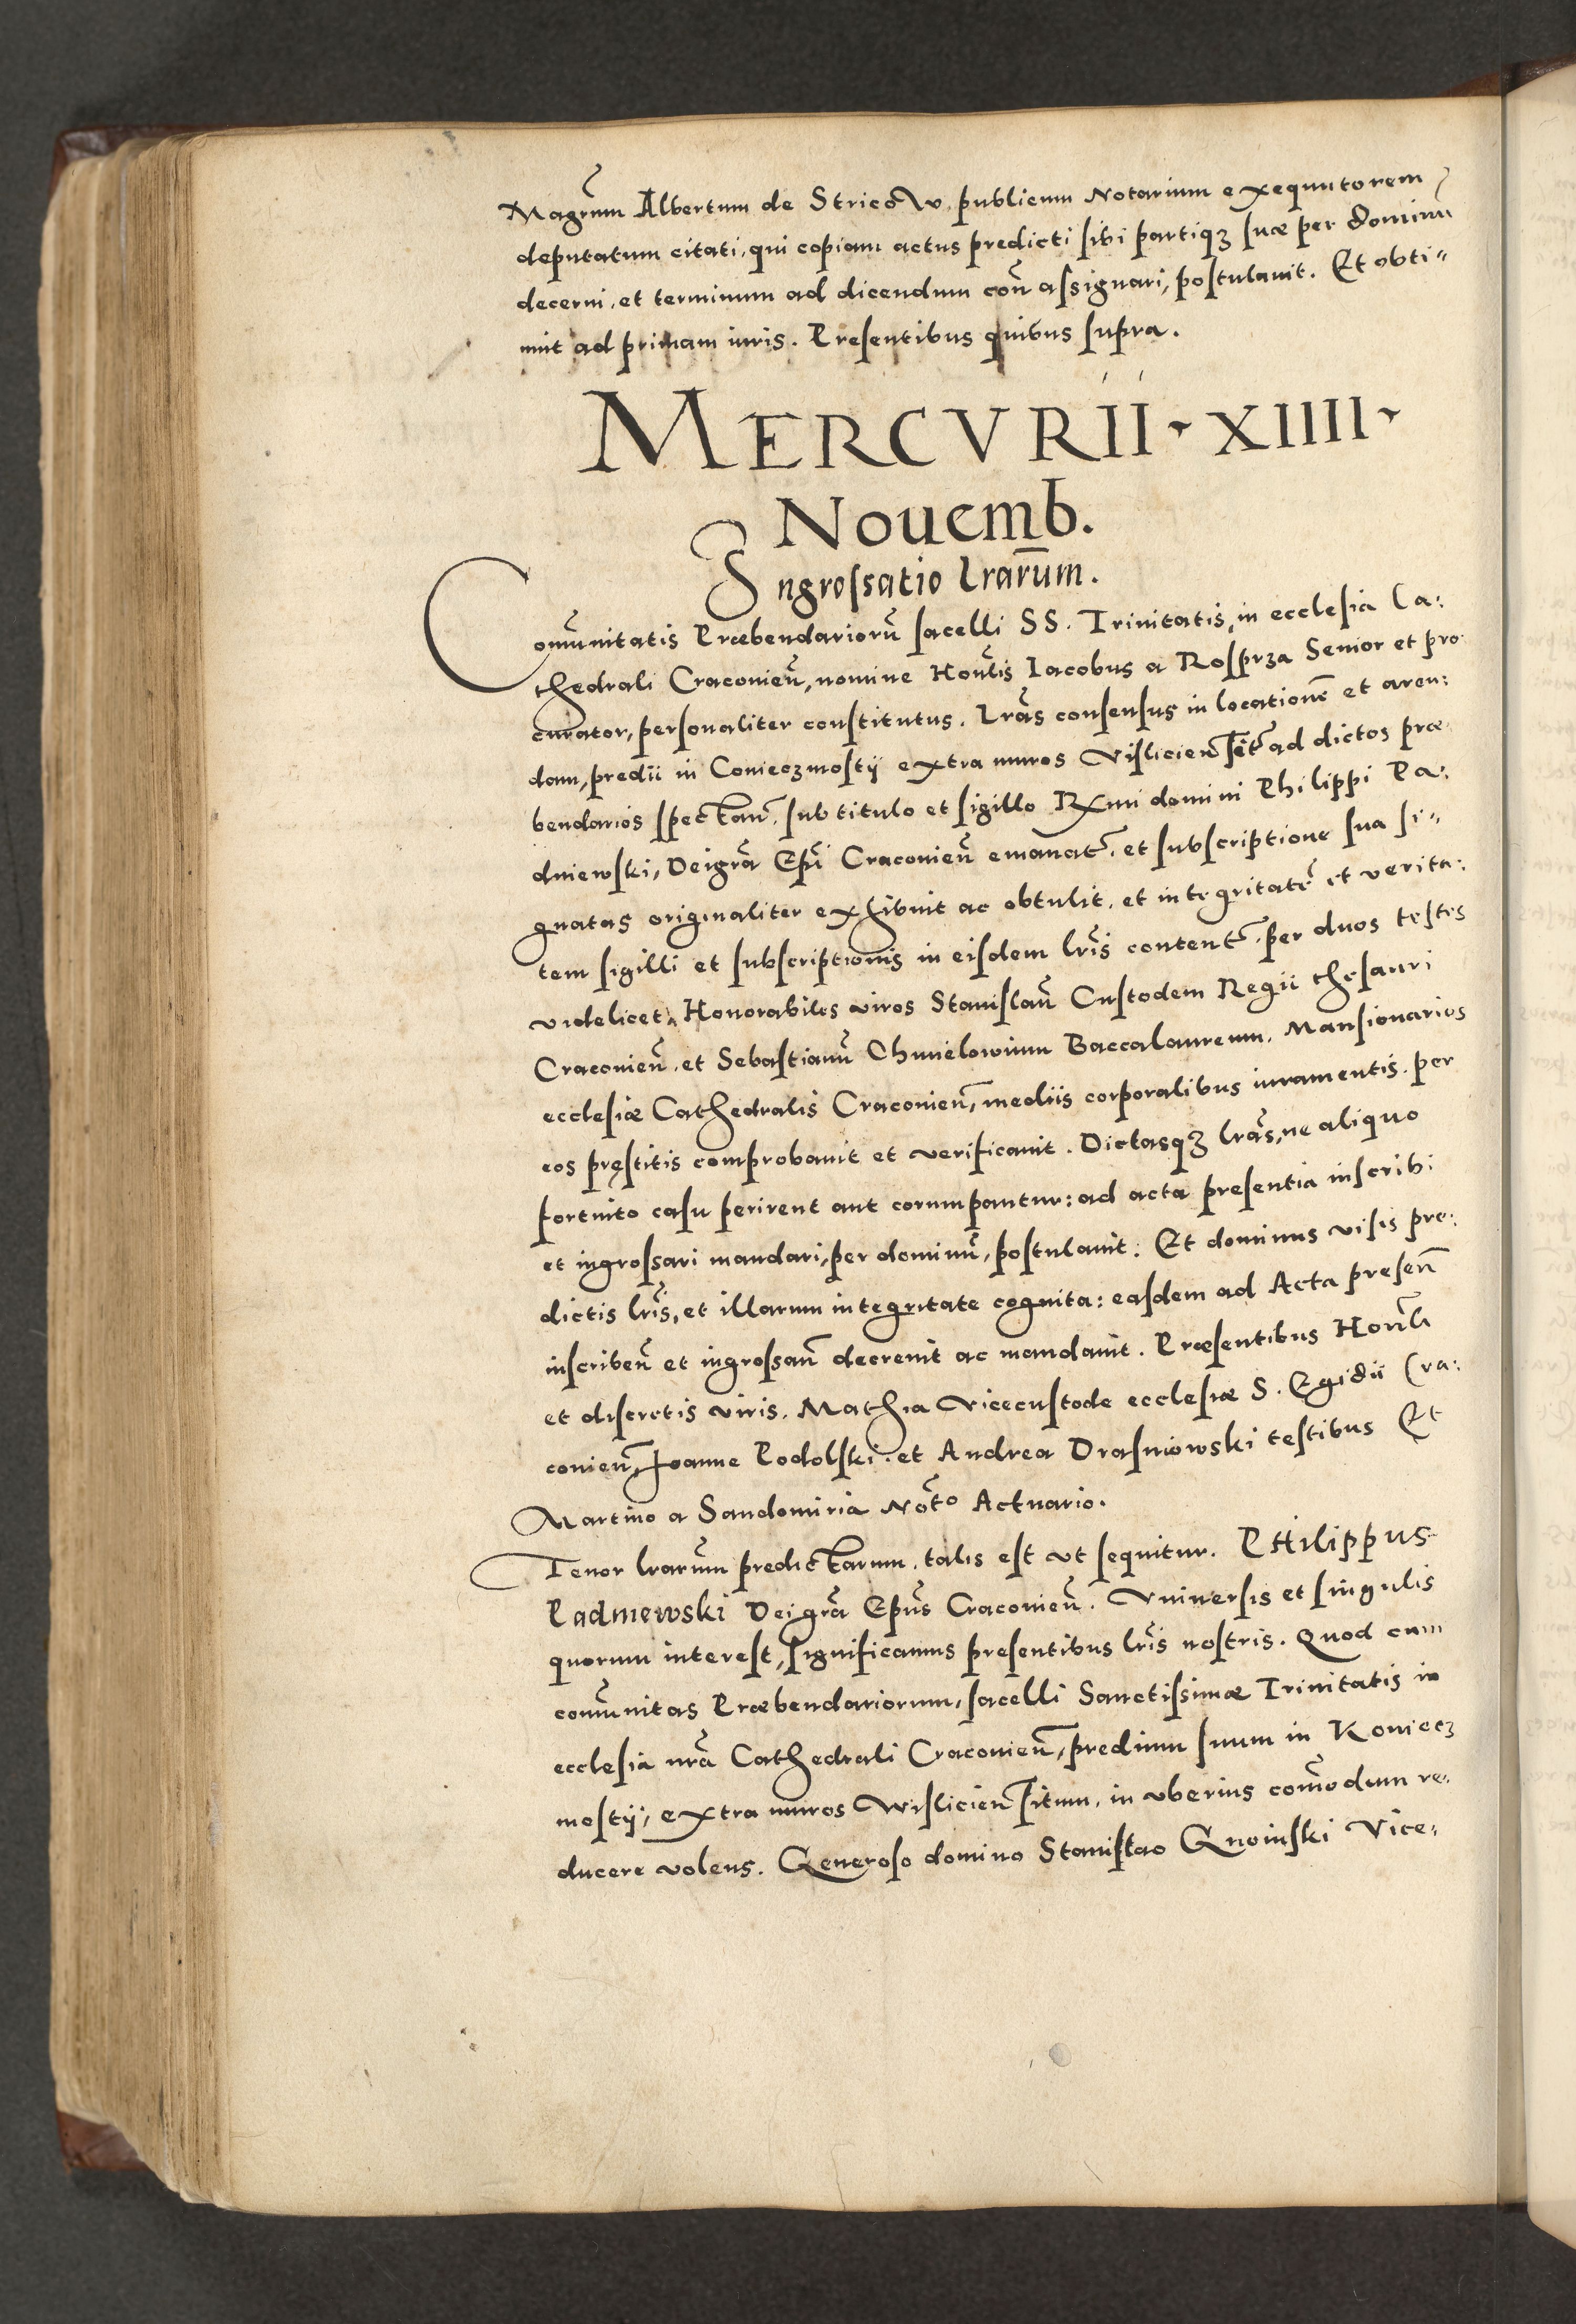 Magr̃um Albertum de Stricow, publicum Notarium exequutorem
deputatum citati, qui copiam actus predicti sibi partiqʒ suæ per dominũ
decerni, et terminum ad dicendum coñ assignari, postulauit. Et obti"
nuit ad primam iuris. Presentibus quibus supra.
MERCVRII · XIIII ·
Nouemb.
Ingrossatio Lrar̃um.
Com̃unitatis Præbendariorũ sacelli SS. Trinitatis, in ecclesia Ca:
thedrali Craconieñ, nomine Hon̄lis Iacobus a Rosprza Senior et pro:
curator, personaliter constitutus. Lrãs consensus in locationẽ et aren:
dam, predii in Conieczmostÿ extra muros Vislicieñ sit̃ ad dictos præ
bendarios spectañ, sub titulo et sigillo Rx̃mi domini Philippi Pa:
dniewski, Dei grã Ep̃i Craconieñ emanat̃, et subscriptione sua si"
gnatas originaliter exhibuit ac obtulit, et integritatẽ et verita:
tem sigilli et subscriptionis in eisdem lr̃is content̃, per duos testes
videlicet, Honorabiles viros Stanislaũ Custodem Regii thesauri
Craconieñ, et Sebastianũ Chmielowium Baccalaureum, Mansionarios
ecclesiæ Cathedralis Craconieñ, mediis corporalibus iuramentis, per
eos pręstitis comprobauit et verificauit. Dictasqʒ lrãs, ne aliquo
fortuito casu perirent aut corumpantur: ad acta presentia inscribi
et ingrossari mandari, per dominũ, postulauit. Et dominus visis pre:
dictis lr̃is, et illarum integritate cognita: easdem ad Acta preseñ
inscribeñ et ingrossañ decreuit ac mandauit. Præsentibus Hon̄li
et discretis viris, Mathia Vicecustode ecclesiæ S. Egidii Cra:
conieñ, Joanne Podolski, et Andrea Drasniowski testibus Et
Martino a Sandomiria Not̃o Actuario.
Tenor lrar̃um predictarum, talis est vt sequitur. PHilippus
Padniewski Dei grã Ep̃us Craconieñ. Vniuersis et singulis
quorum interest, significamus presentibus lr̃is nostris. Quod cum
com̃unitas Præbendariorum, sacelli Sanctissimæ Trinitatis in
ecclesia nr̃a Cathedrali Craconieñ, predium suum in Koniecz
mostÿ, extra muros Wislicieñ situm, in vberius com̃odum re:
ducere volens. Generoso domino Stanislao Gnoinski Vice: